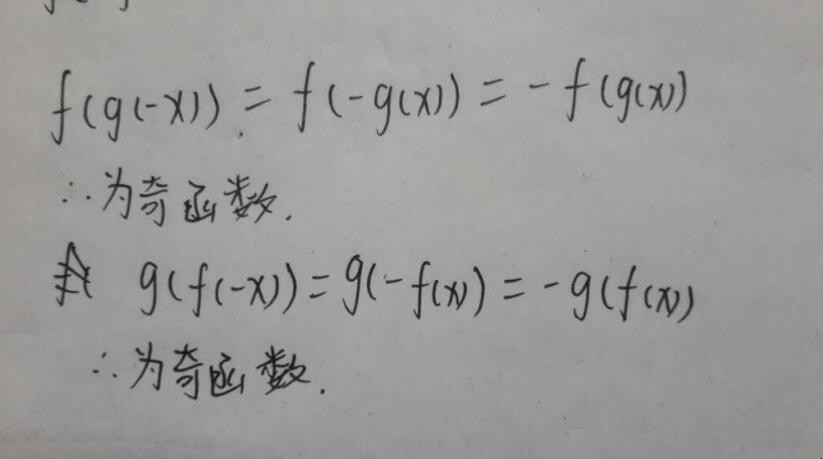 f(g(-x)) = f(-g(x)) = -f(g(x))
∴为奇函数.
g(f(-x)) = g(-f(x)) = -g(f(x))
∴为奇函数.